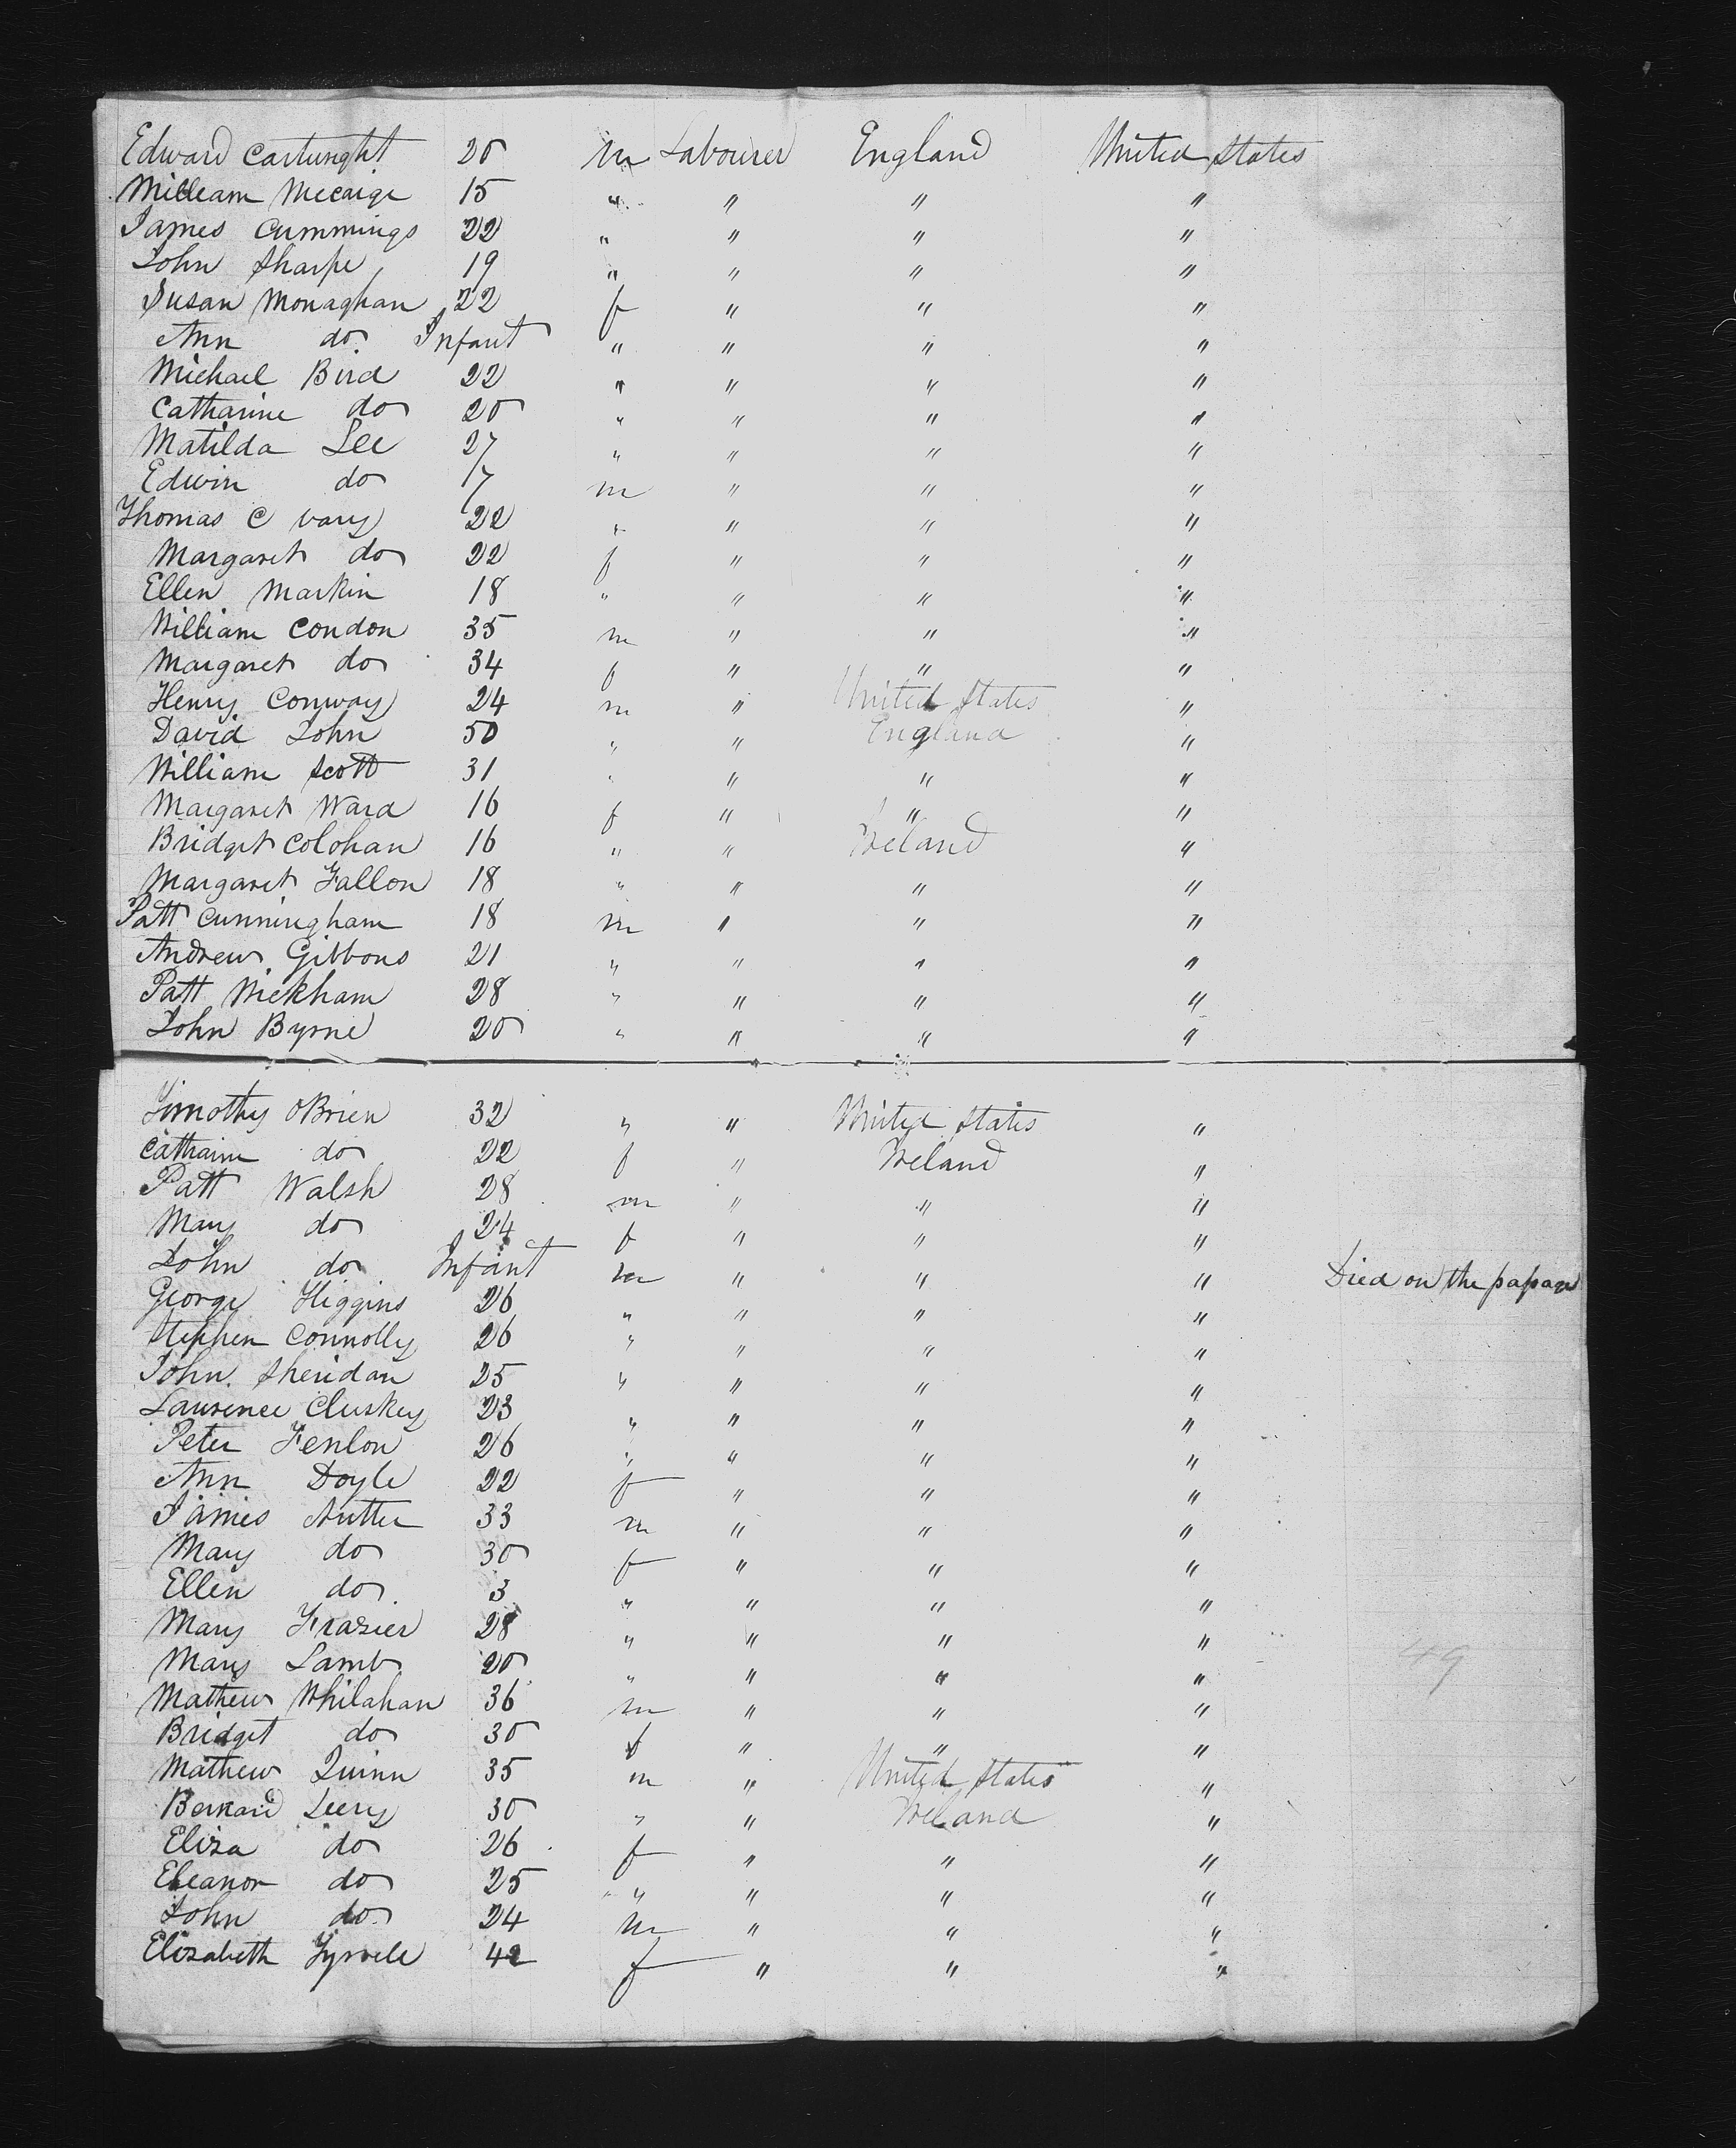 Edward Cartwright 20 m Labourer England United States
William Mccaige 15 " " " "
James Cummings 22 " " " "
John Sharpe 19 " " " "
Susan Monaghan 22 f " " "
Ann do Infant " " " "
Michael Bird 22 " " " "
Catharine do 20 " " " "
Matilda Lee 27 " " " "
Edwin do 17 m " " "
Thomas C Vary 22 " " " "
Margaret do 22 f " " "
Ellen Markin 18 " " " "
William Condon 35 m " " "
Margaret do 34 f " " "
Henry Conway 24 m " United States "
David John 50 " " England "
William Scott 31 " " " "
Margaret Ward 16 f " " "
Bridget Colohan 16 " " Ireland "
Margaret Fallon 18 " " " "
Patt Cunningham 18 m " " "
Andrew Gibbons 21 " " " "
Patt Wickham 28 " " " "
John Byrne 20 " " " "
Timothy OBrien 32 " " United States "
Catharine do 22 f " Ireland "
Patt Walsh 28 m " " "
Mary do 24 f " " "
John do Infant m " " " Died on the passage
George Higgins 26 " " " "
Stephen Connolly 26 " " " "
John Sheridan 25 " " " "
Laurence Cluskey 23 " " " "
Peter Fenlon 26 " " " "
Ann Doyle 22 f " " "
James Nutter 33 m " " "
Mary do 30 f " " "
Ellen do 3 " " " "
Mary Frazier 28 " " " "
Mary Lamb 20 " " " "
49
Mathew Whilahan 36 m " " "
Bridget do 30 f " " "
Mathew Quinn 35 m " United States "
Bernard Leery 30 " " Ireland "
Eliza do 26 f " " "
Eleanor do 25 " " " "
John do 24 m " " "
Elizabeth 42 f " " "